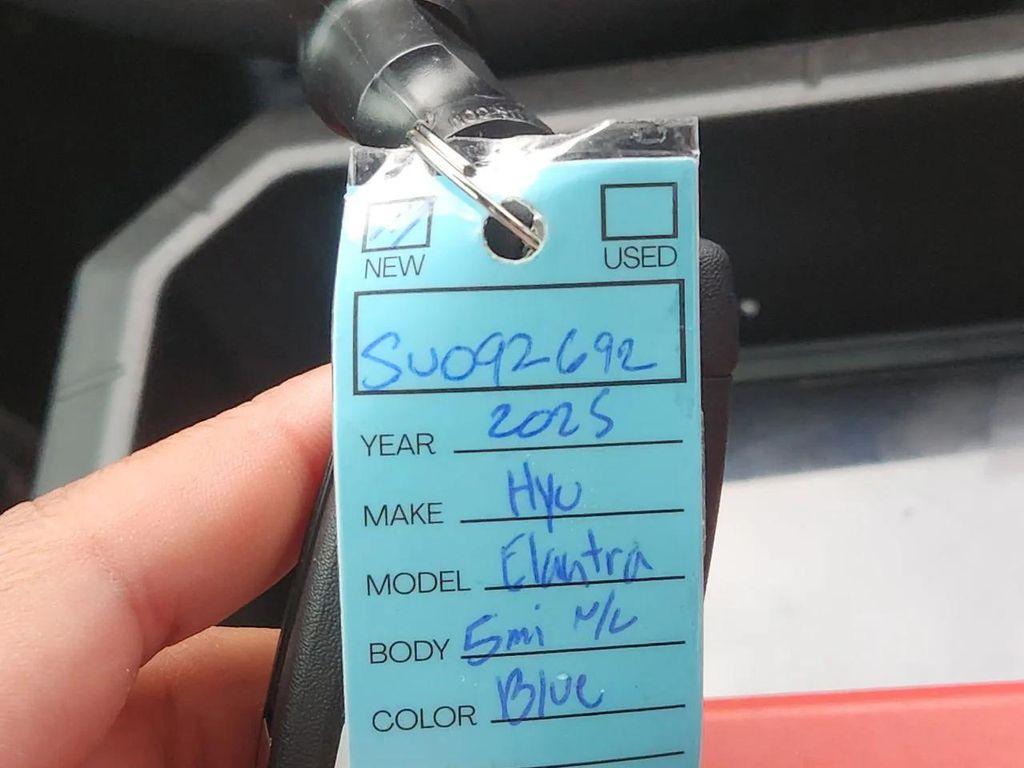 NEW USED
SU092692
YEAR 2025
MAKE Hyu
MODEL Elantra
BODY 5mi N/L
COLOR Blue